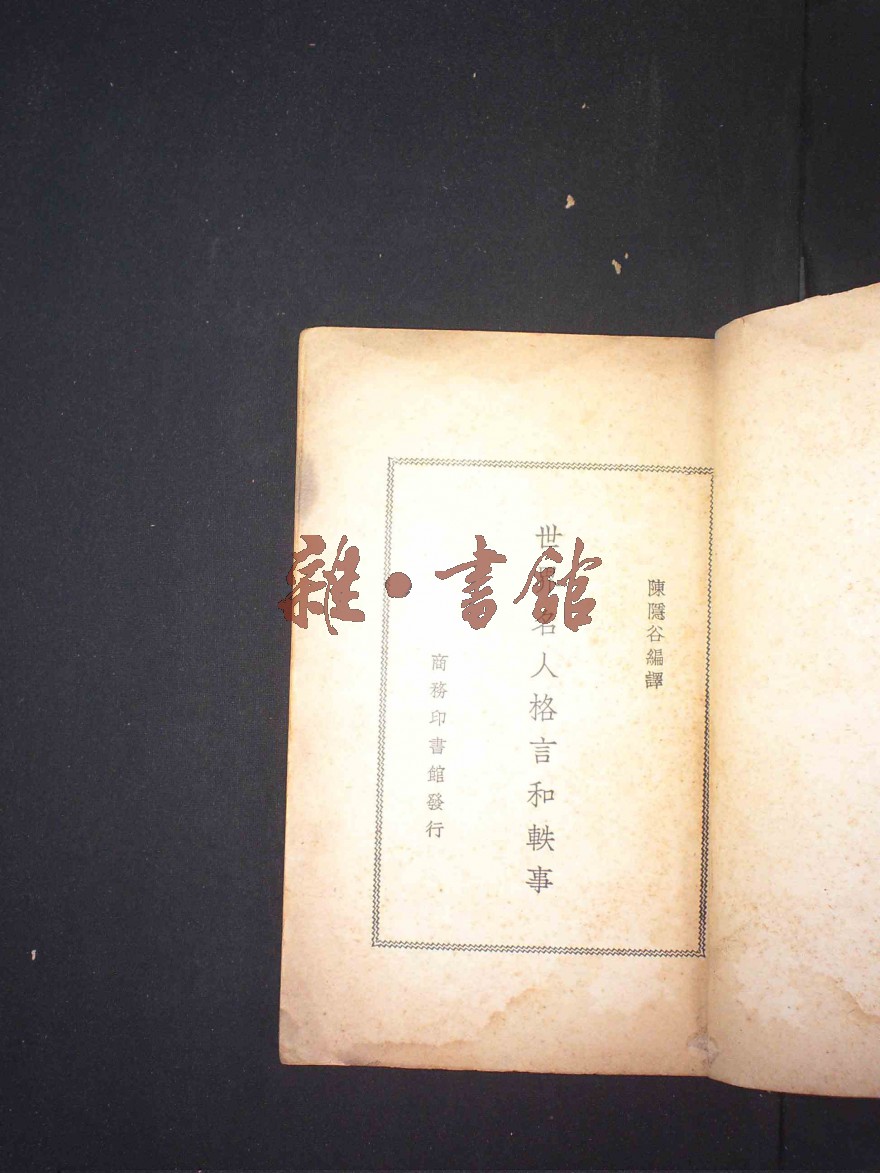 陳隱谷編譯
世界名人格言和軼事
商務印書館發行
雜·書館